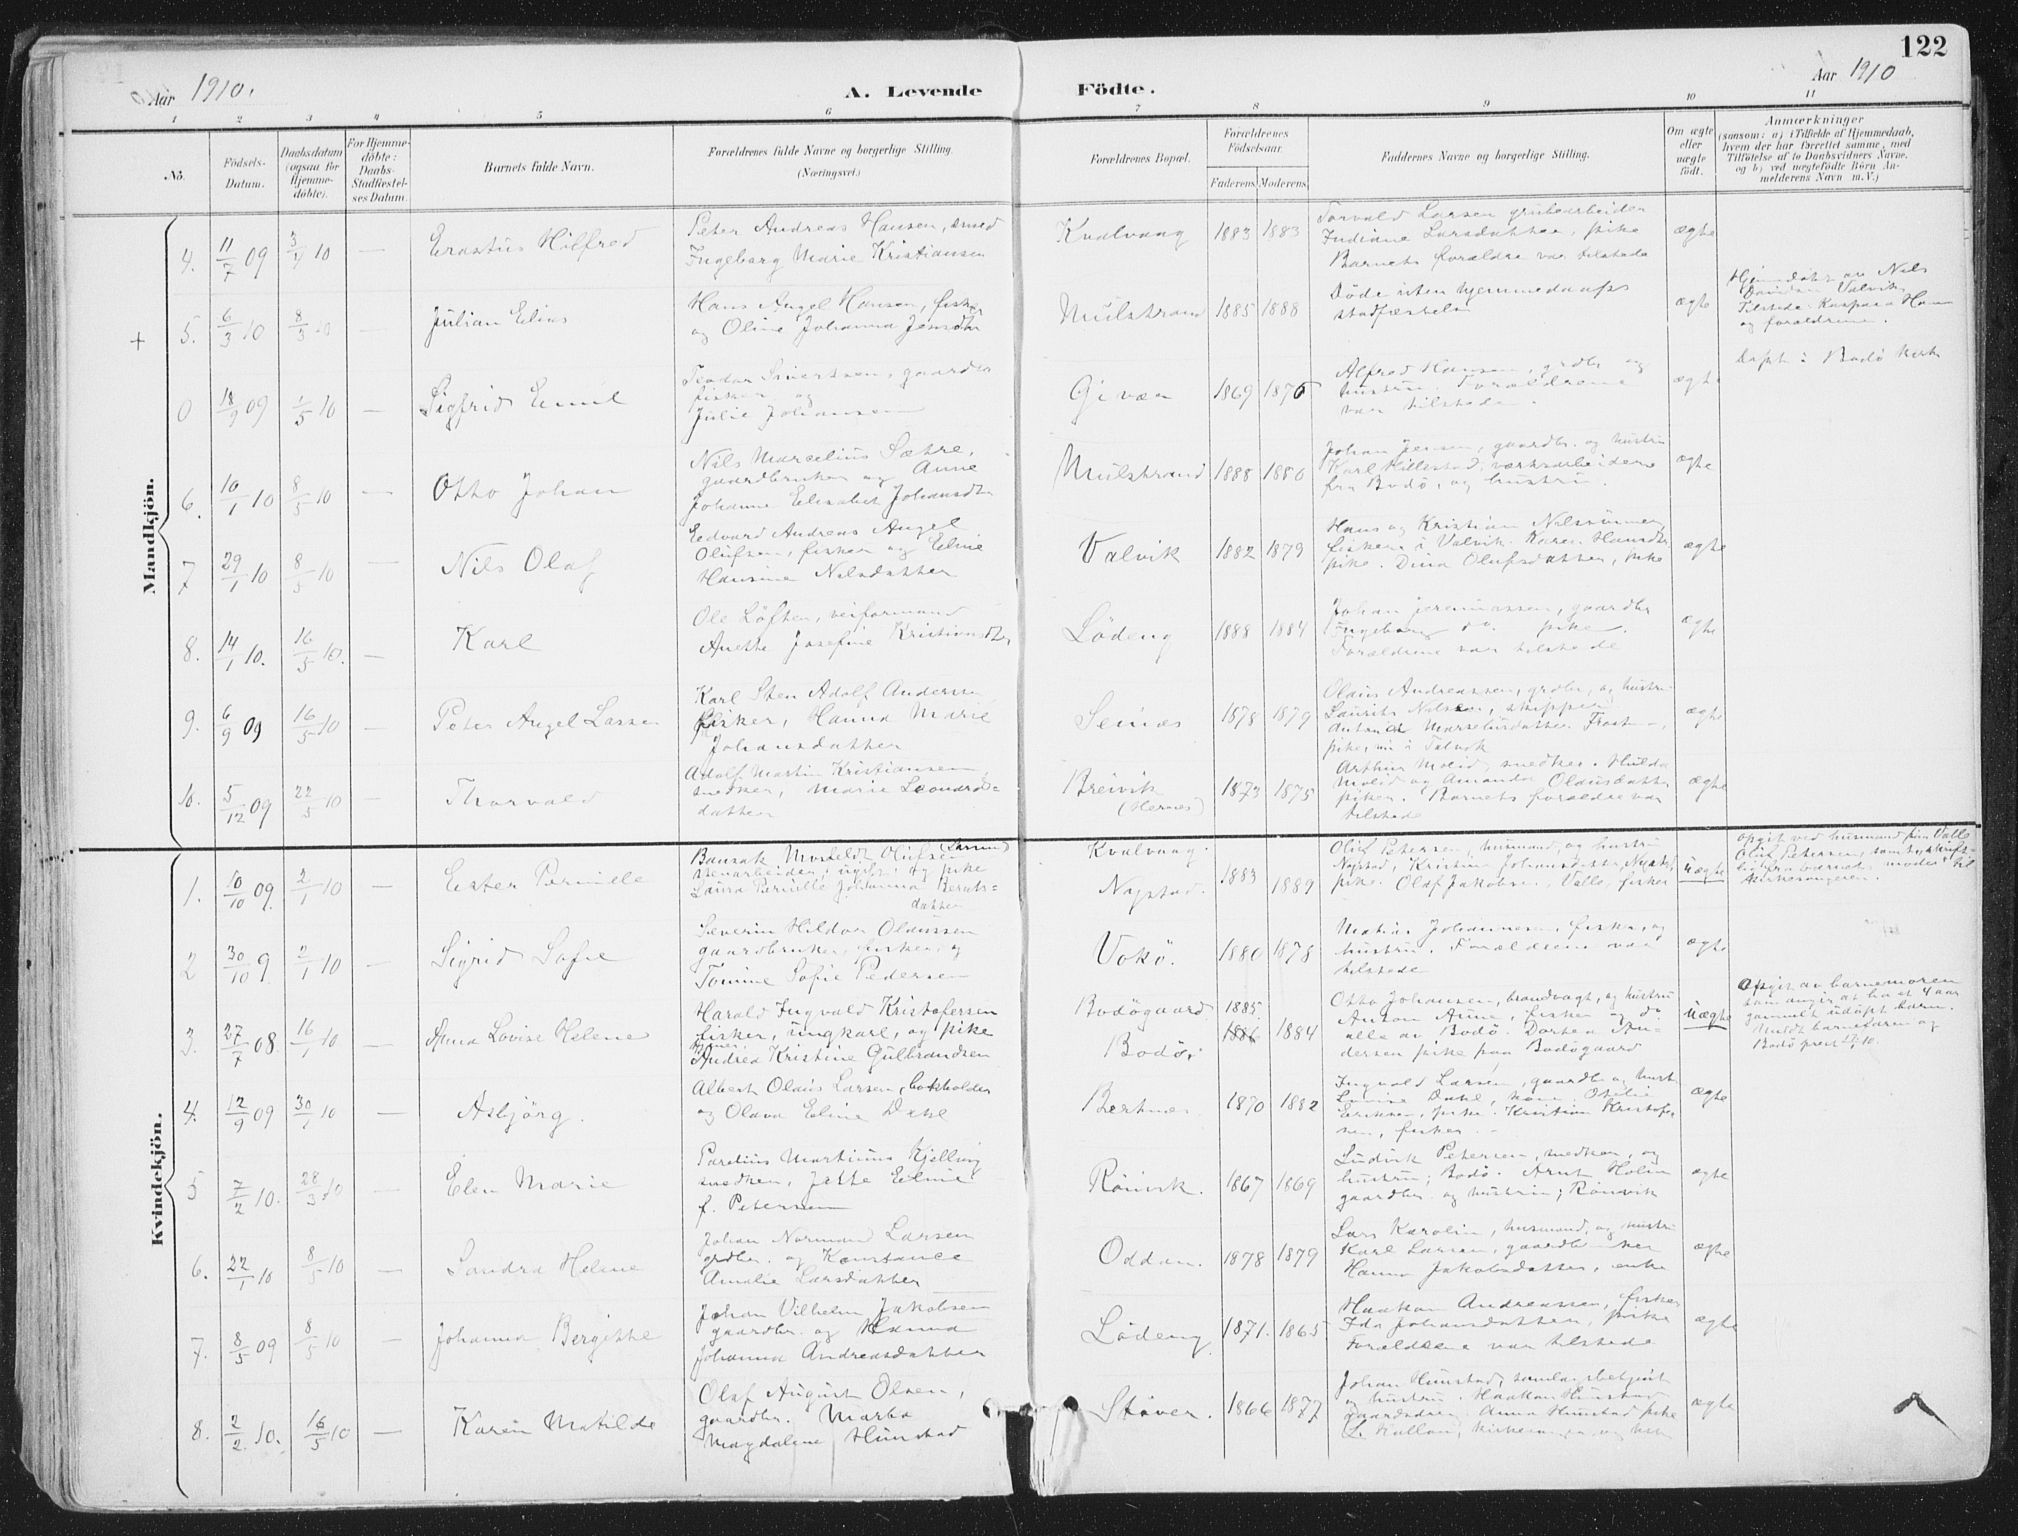 122
Aar 1910.
A. Levende
Födte.
Aar 1910
1 2 3 4 5 6 7 8 9 10 11
No.
Födsels-Datum.
Daabsdatum (ogsaa for Hjemme-döbte).
For Hjemme-döbte: Daabs-Stadfæstel-ses Datum.
Barnets fulde Navn.
Forældrenes fulde Navne og borgerlige Stilling.
(Næringsvei.)
Forældrenes Bopæl.
Forældrenes Födselsaar.
Faderens. Moderens.
Faddernes Navne og borgerlige Stilling.
Om ægte eller uægte födt.
Anmærkninger
(saasom: a) i Tilfælde af Hjemmedaab,
hvem der har forrettet samme, med
Tilföielse af to Daabsvidners Navne,
og b) ved uægtefödte Börn An-
melderens Navn m.V.)
Mandkjön.
4. 11/7 09 3/4 10 — Erastus Hilfred
Peter Andreas Hansen, smed
Ingeborg Marie Kristiansen
Kvalvaag 1883 1883
Torvald Larsen grubearbeider
Indiane Larsdatter, pike
Barnets forældre var tilstede
ægte
+ 5. 6/3 10 8/3 10 — Julian Elias
Hans Angel Hansen, fisker
og Oline Johanna Jensdtr
Mulstrand 1885 1888
Døde uten hjemmedaaps
stadfæstelse
ægte
Hjemdøbt av Nils
Davidsen Valvik
Tilstede Kaspara Hansen
og forældrene.
0 18/9 09 1/5 10 — Sigfrid Emil
Teodor Sivertsen, gaardbr
fisker og
Julie Johansen
Givær 1869 1876
Alfred Hansen, grdbr og
hustru. Forældrene
var tilstede.
ægte
Døpt i Bodø kirke
6. 10/1 10 8/5 10 — Otto Johan
Nils Marcelius Sætre,
gaardbruker og Anne
Johanne Elisabet Johansdtr
Mulstrand 1888 1880
Johan Jensen, gaardbr. og hustru
Karl Hillestad, værksarbeidere
fra Bodø, og hustru.
ægte
7 29/1 10 8/5 10 — Nils Olaf
Edvard Andreas Angel
Olufsen, fisker og Eline
Hansine Nilsdatter
Valvik 1882 1879
Hans og Kristian Nilssønner,
fiskere i Valvik. Karen Hansdtr
pike. Dina Olufsdatter, pike
ægte
8. 14/1 10. 16/5 10. — Karl
Ole Løften, veiformand
Anette Josefine Kristiansdtr
Lødeng 1888 1884
Johan Jeremiassen, gaardbr
Ingeborg do. pike.
Forældrene var tilstede
ægte
9. 6/9 09 16/5 10 — Peter Angel Lassen
Karl Sten Adolf Andersen
fisker, Hanna Marie
Johansdatter
Semnes 1878 1879
Olaus Andreassen, grdbr, og hustru
Laurits Nilsen, skipper
Marselinsdatter
pike,
ægte
10. 5/12 09 22/5 10 — Thorvald
Adolf Martin Kristiansen
snedker, Marie Leonards-
datter
Breivik
(Hernes)
1873 1875
Arthur Molid, snedker. Hulda
Molid og Amanda Olausdatter
piker. Barnets forældre var
tilstede
ægte
Kvindekjön.
1. 10/10 09. 2/1 10 — Ester Pernille
Olufsen (Larsen)
stenarbeider, ugift, og pike
Laura Pernille Johanna Bernts-
datter
Kvalvaag.
Nystad. 1883 1889
Oluf Petersen, husmand, og hustru
Nystad, Kristine Johansdatter, Nystad,
pike. Olaf Jakobsen, Valle, fisker
uægte
Opgit ved husmand paa Valle
Oluf Petersen som skrift-
lig fra barnets moder til
kirkesangeren.
2 30/10 9. 2/1 10 — Sigrid Sofie
Severin Hildor Olaussen
gaardbruker, fisker og
Tomine Sofie Pedersen
Vokø. 1880 1878
Johannesen, fisker, og
hustru. Forældrene var
tilstede
ægte
3. 27/7 08. 16/1 10 — Anna Lovise Helene
Harald Ingvald Kristofersen
fisker, ungkarl, og pike
Andrea Kristine Gulbrandsen
Bodøgaard
Bodø.
1885. 1886 1884
Otto Johansen, brandvagt, og hustru
Anton Aune, fisker og do
alle av Bodø. Dortea An-
dersen pike paa Bodøgaard
uægte
Opgit av barnemoren
som angir at ha et 4 aar
gammelt udøpt barn.
Meldt barnefaren og
Bodø prest 17/1 10.
4. 12/9 09 30/1 10 — Asbjörg.
Albert Olaus Larsen, bokholder
og Olava Eline Dahl
Bertnes 1870 1882
Ingvald Larsen, gaardbr og hustr
Lovise Dahl, kone. Otelie
Eriksen, pike. Kristian Kristofer
sen, fisker. —
ægte
5 7/2 10. 28/3 10 — Elen Marie
Parelius Martinus Kjelling
snedker, Jette Eline
f. Petersen
Rönvik. 1867 1869
Ludvik Petersen, snedker, og
hustru; Bodø. Arnt Holm
gaardbr. og hustru; Rønvik
ægte
6. 22/1 10 8/5 10 — Sandra Helene
Johan Normand Larsen
grdbr. og Konstance
Amalie Larsdatter
Oddan. 1878 1879
Lars Karolin, husmand, og hustru
Karl Larsen, gaardbruker
Hanna Jakobsdatter, enke
ægte
7. 8/5 09 8/5 10 — Johanna Bergitte
Johan Vilhelm Jakobsen
gaardbr. og Hanna
Johanna Andreasdatter
Lødeng 1871. 1865
Haakon Andreassen, fisker
Ida Johansdatter, pike
Forældrene var tilstede
ægte
8. 2/2. 10. 16/5 10 — Karen Matilde
Olaf August Olsen,
gaardbr. Marta
Magdalene Hunstad
Støver. 1866 1877
Johan Hunstad,
hustru. Haakon Hunstad
Anna Hunstad pike
ægte